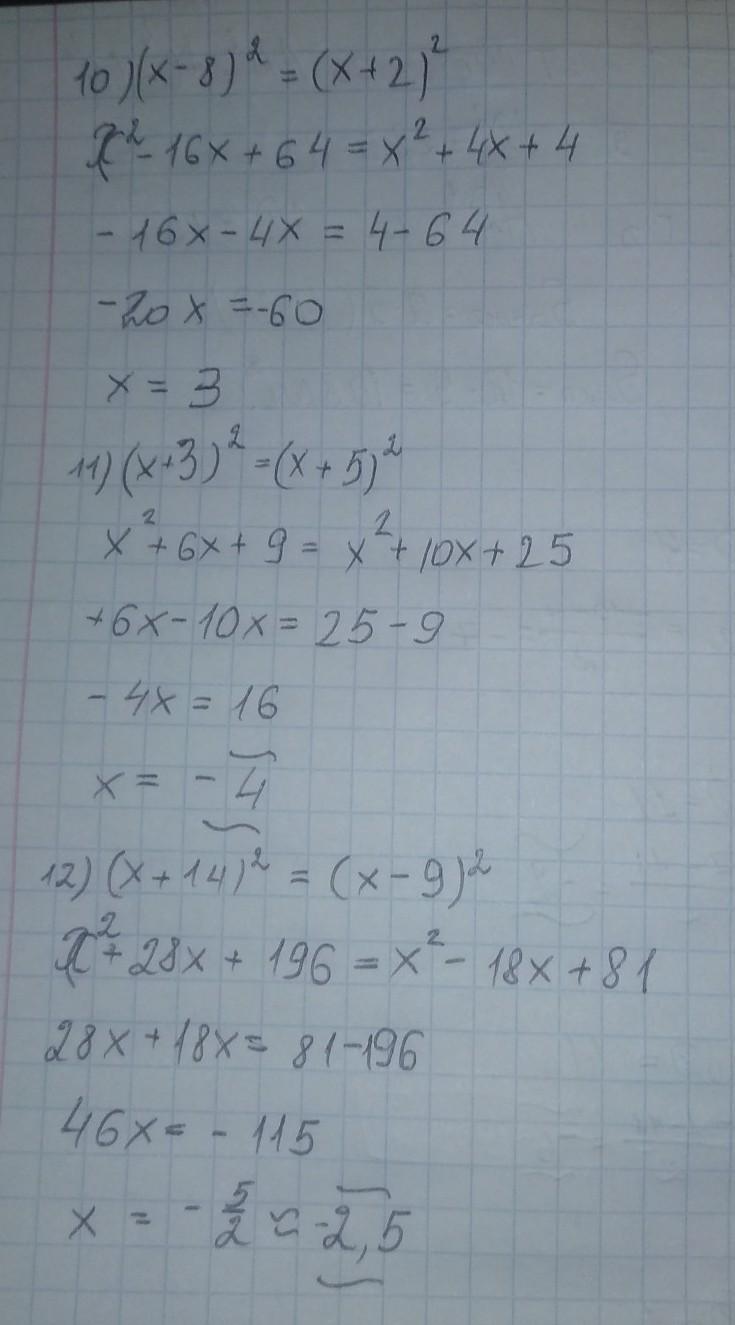 10) (x-8)² = (x+2)²
x² - 16x + 64 = x² + 4x + 4
- 16x - 4x = 4 - 64
-20x = -60
x = 3
11) (x+3)² = (x+5)²
x² + 6x + 9 = x² + 10x + 25
+6x - 10x = 25 - 9
- 4x = 16
x = - 4
12) (x+14)² = (x-9)²
x² + 28x + 196 = x² - 18x + 81
28x + 18x = 81 - 196
46x = - 115
x = - 5/2 = -2,5